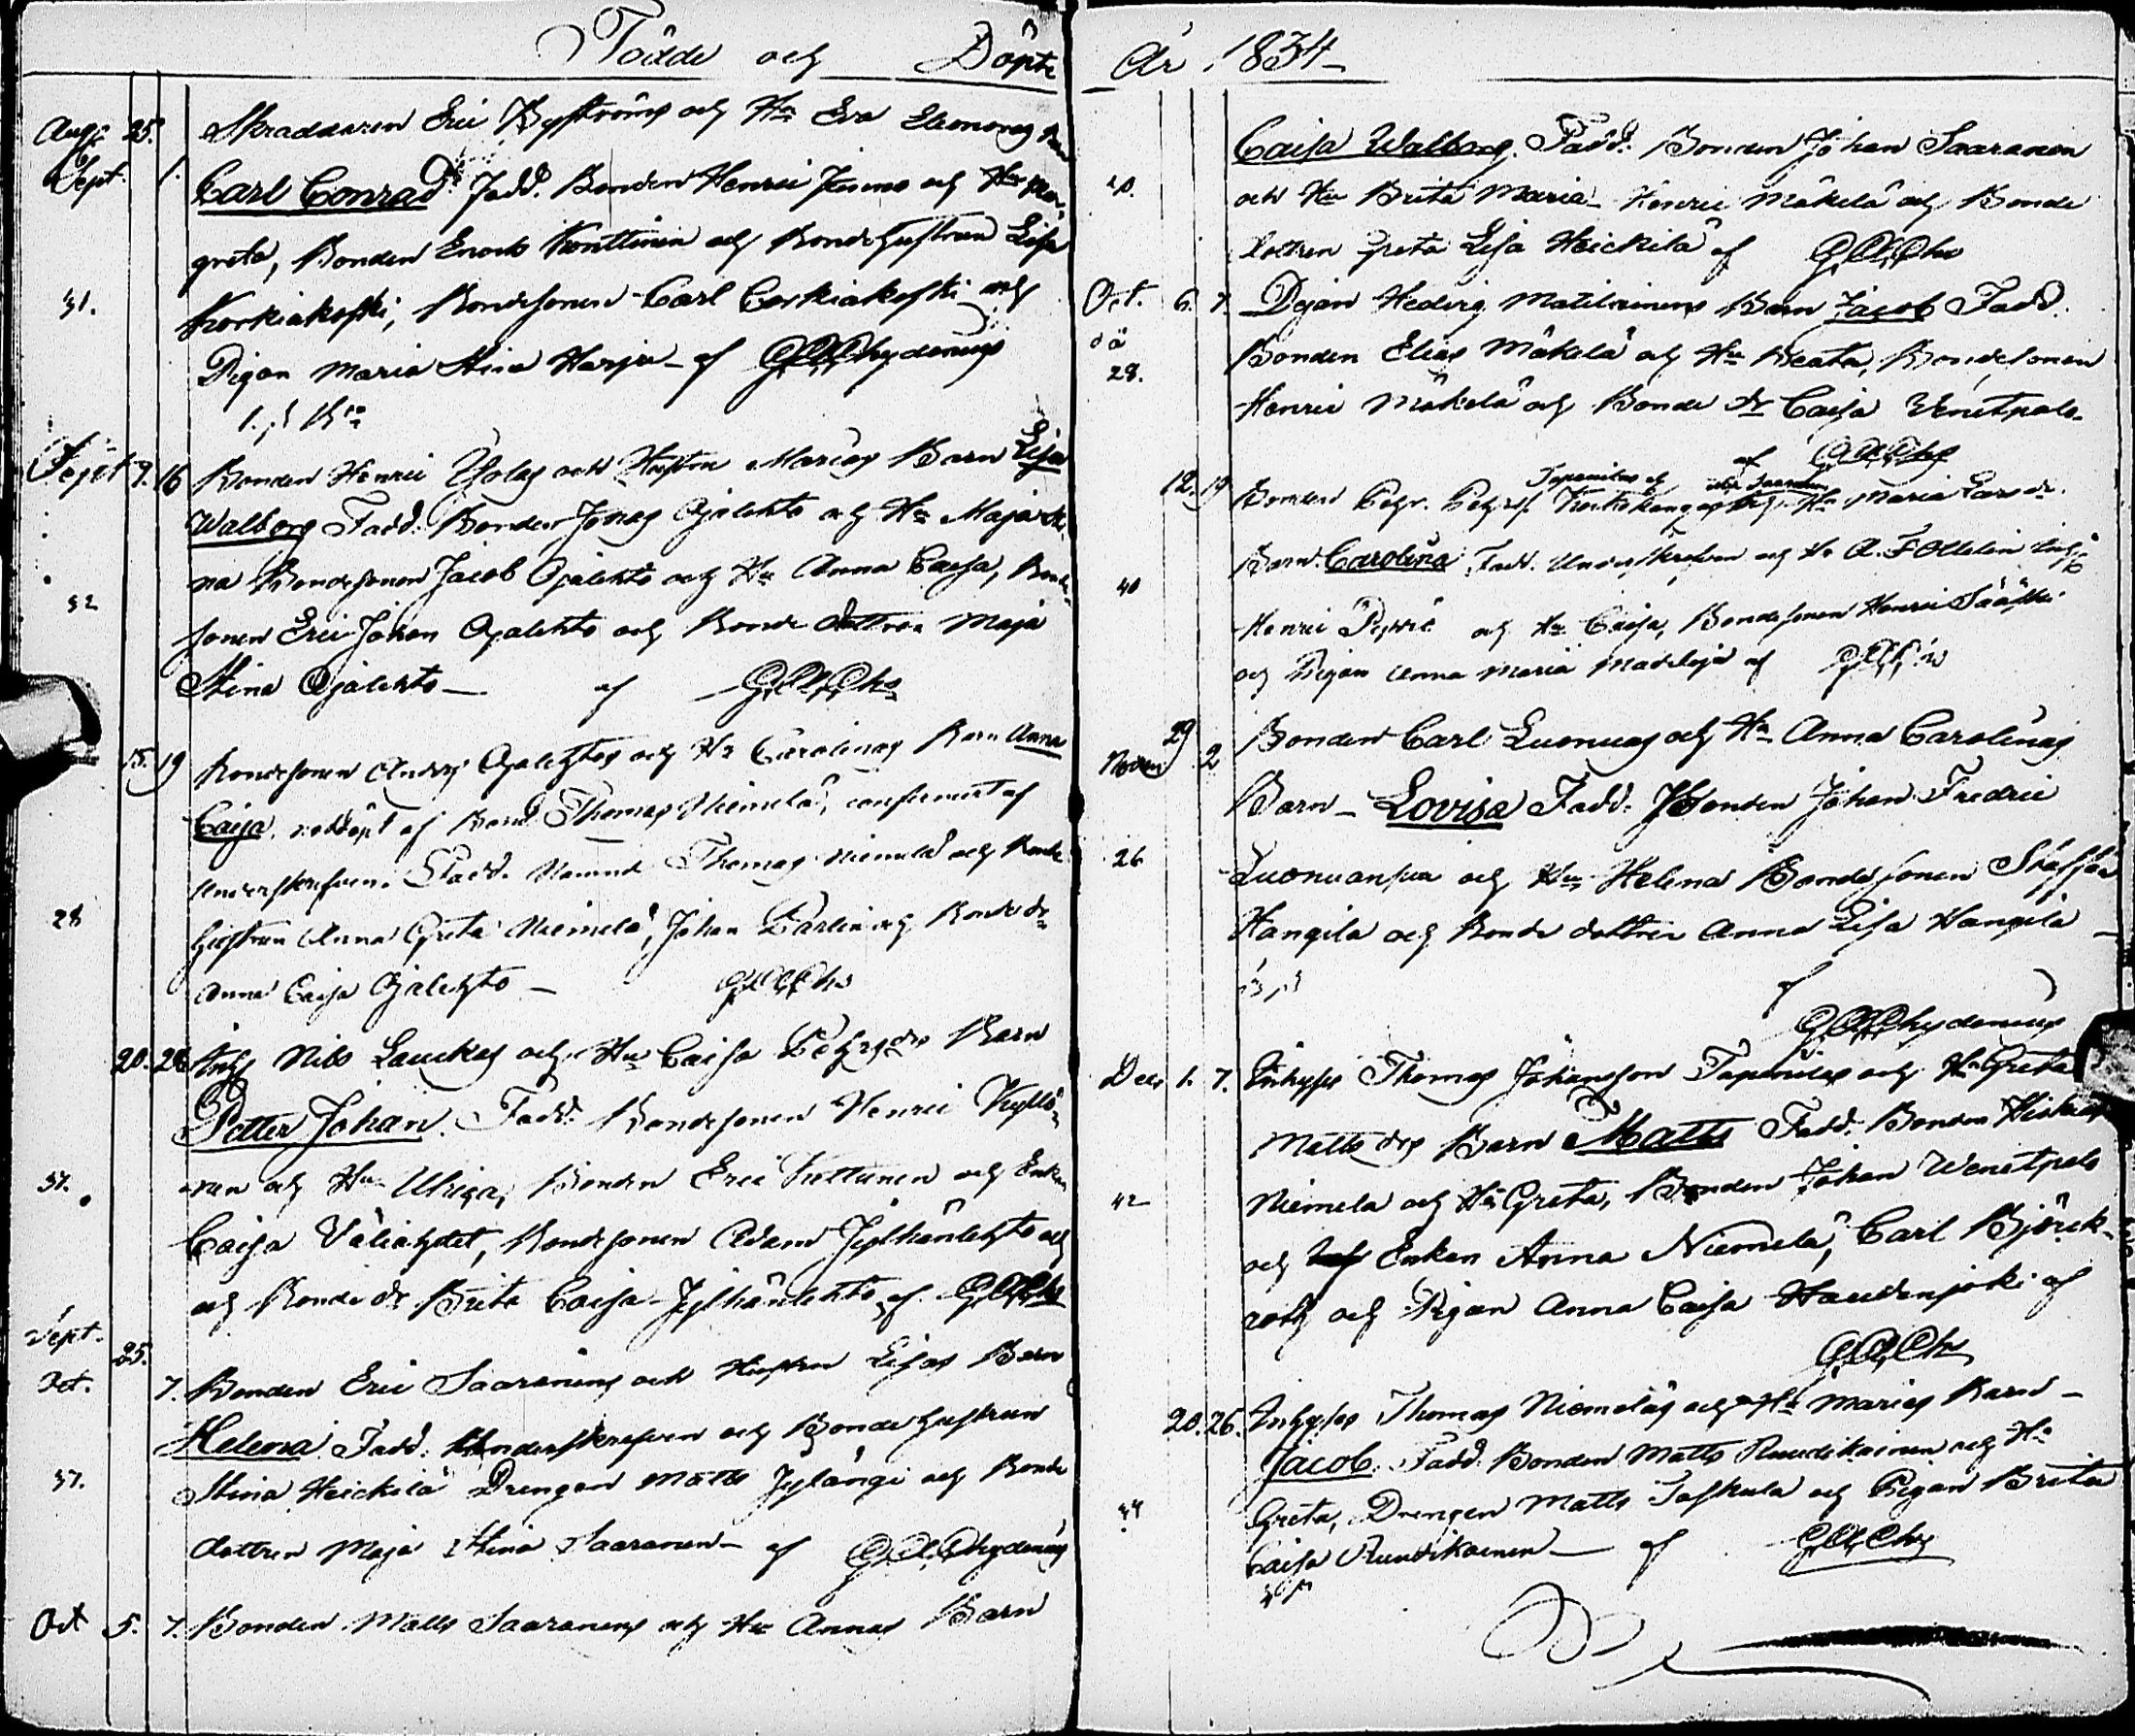 Födde och Döpte
Aug: 25. Skraddaren Eric Byströms och Hu Eva Eleonoras
Sept. 1. Carl Conrad. Fadd. Bonden Henric och Hu Mar-
greta, Bonden Enoch Konttinen och Bondehustrun Lisa
31. Korkiakoski, Bondesonen Carl Corkiakoski och
Pigan Maria Stina Harju - af Chydenius
Sept 7. 16 Bonden Henric och Hustru Marias Barn Lisa
Walborg Fadd. Bonden Jonas Ojalehto och Hu Maja Sti-
na Bondesonen Jacob Ojalehto och Hu Anna Caisa, Bonde-
32 sonen Eric Johan Ojalehto och Bonde dottren Maja
Stina Ojalehto - af G.A.Chs
15. 19 Bondesonen Anders Ojalehtos och Hu Carolinas Barn Anna
Caisa. nöddöpt af Thomas Niemelä, confirmert af
Underskrefven. Fadd. Thomas Niemelä och Bonde
28 hustrun Anna Greta Niemelä, Johan och Bonde dr
Anna Caisa Ojalehto - G.A.Chs
20. 26 Inhs Nils Lauckas och Hu Caisa Barn
Petter Johan. Fadd. Bondesonen Henric Kyllö-
37. nen och Hu Ulrica, Bonden Eric Kettunen och Enkan
Caisa Väliahdet, Bondesonen Adam Jylhänlehto och
och Bonde dr Brita Caisa Jylhänlehto af G.A.Chs
Sept. 25.
Oct. 7. Bonden Eric Saaranens och Hustrun Lisas Barn
Helena. Fadd. Underskrefven och Bonde Hustrun
37. Stina Heickilä Drengen Matts Jylängi och Bonde
dottren Maja Stina Saaranen - af G.A.Chydenius
Oct 5. 7. Bonden Matts Saaranens och Hu Annas Barn
År 1834
Caisa Walborg. Fadd: Bonden Johan Saaranen
40. och Hu Brita Maria - Henric Mäkelä och Bonde
dottren Greta Lisa Heickilä af G.A.Chs
Oct. 6. 7. Pigan Hedvig Matilainens Barn Jacob Fadd.
då Bonden Elias Mäkelä och Hu Beata, Bondesonen
28. Henric Mäkelä och Bonde dr Caisa Venetpalo
af G.A.Chs
12. 19 Bonden Hu Maria Larsdr.
Barn Carolina Fadd. Underskrefven och
40 Henric och Hu Caisa, Bondesonen Henric Sääski
och Pigan Anna Maria Madeloja af G.A.C
29
Novem 2 Bonden Carl Luonuas och Hu Anna Carolinas
Barn - Lovisa Fadd. Bonden Johan Fredric
26 Luonuansuu och Hu Helena Bondesonen Staffan
Hangila och Bonde dottren Anna Lisa Hangila -
af
G.A.Chydenius
Dec. 1. 7. Inhyses Thomas Johansson och Hu Greta
Matts drs Barn Matts Fadd. Bonden
42 Niemela och Hu Greta, Bonden Johan Wenetpalo
och Enkan Anna Niemelä, Carl Björck-
roth och Pigan Anna Caisa Haudanjoki af
G.A.Chs
20. 26. Inhyses Thomas Niemeläs och Hu Marias Barn -
Jacob. Fadd. Bonden Matts Ruudikainen och Hu
34 Greta, Drengen Matts och Pigan Brita
Caisa Ruudikainen - af G.A.Chs